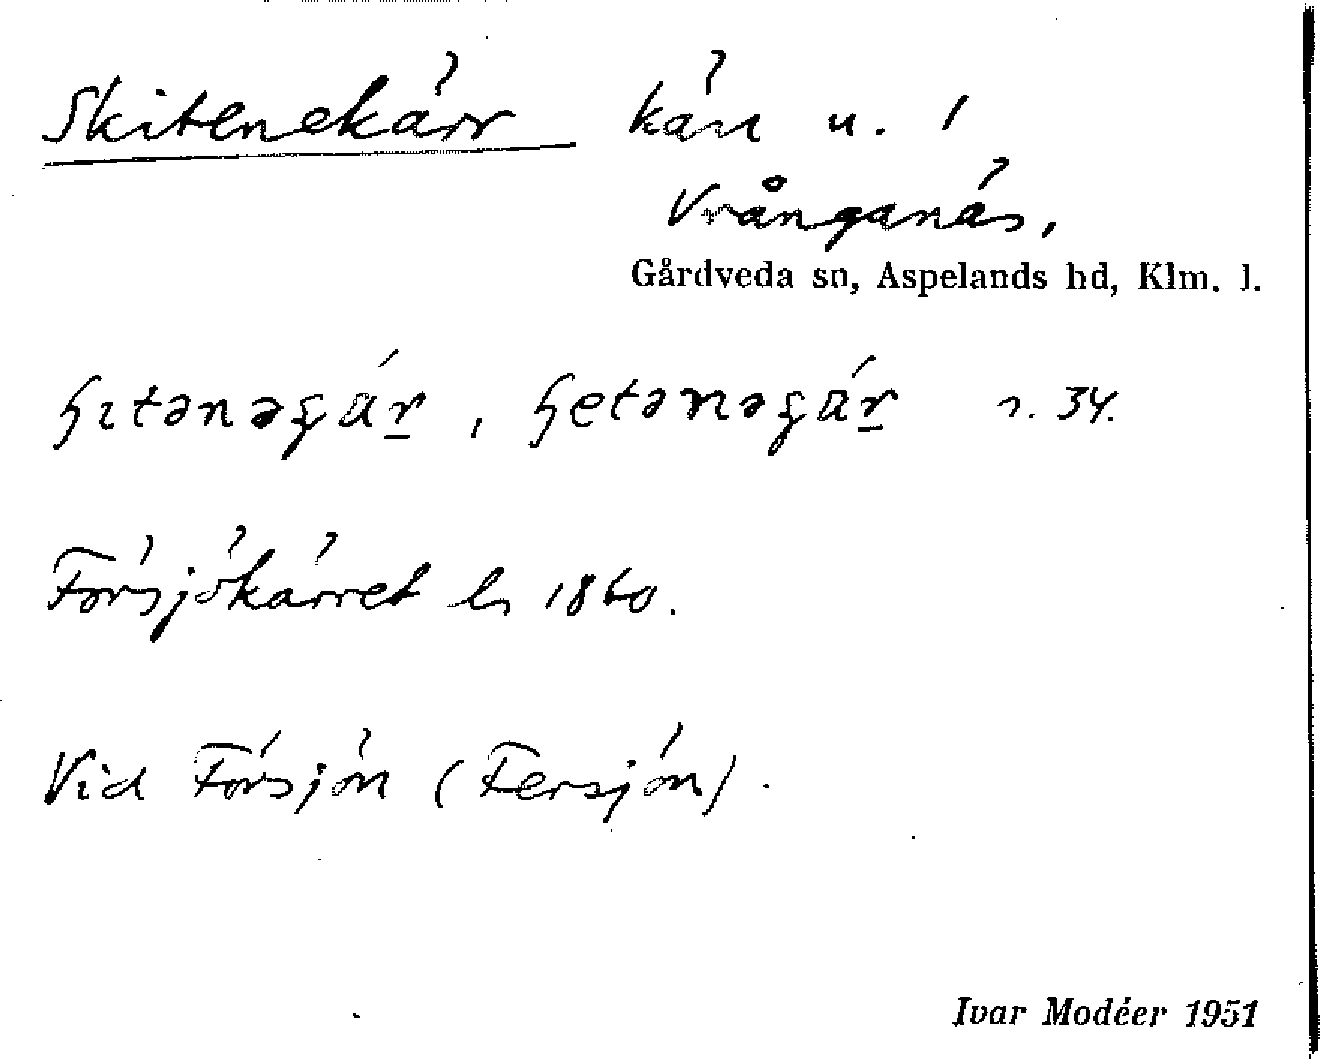 Skitenekärr kärr u. 1
Vrånganäs,
Gårdveda sn, Aspelands hd, Klm. l.
n. 34.
Försjökärret ls 1860.
Vid Försjön (Fersjön).
Ivar Modéer 1951